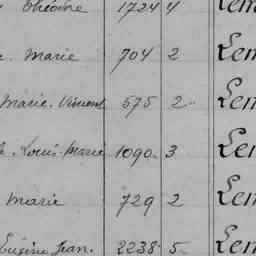 Théodore 1724 4 Lem
Marie 704 2 Lem
Marie Vincent 575 2 Lem
Louis Marie 1090 3 Lem
Marie 729 2 Lem
Eugène Jean. 2238 5 Lem